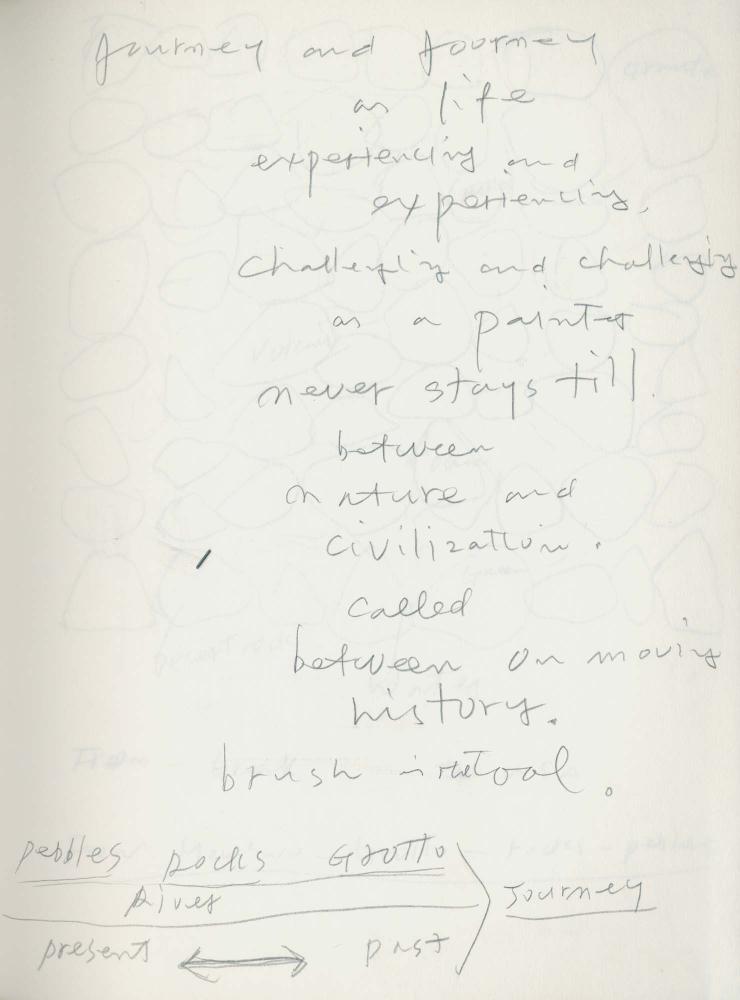 Journey and Journey
as life
experiencing and
experiencing,
Challenging and challenging
as a painter
never stays till.
between
nature and
civilization.
called
between on moving
history.
brush is the tool.
pebbles rocks Grotto
River
Journey
present ⟷ past